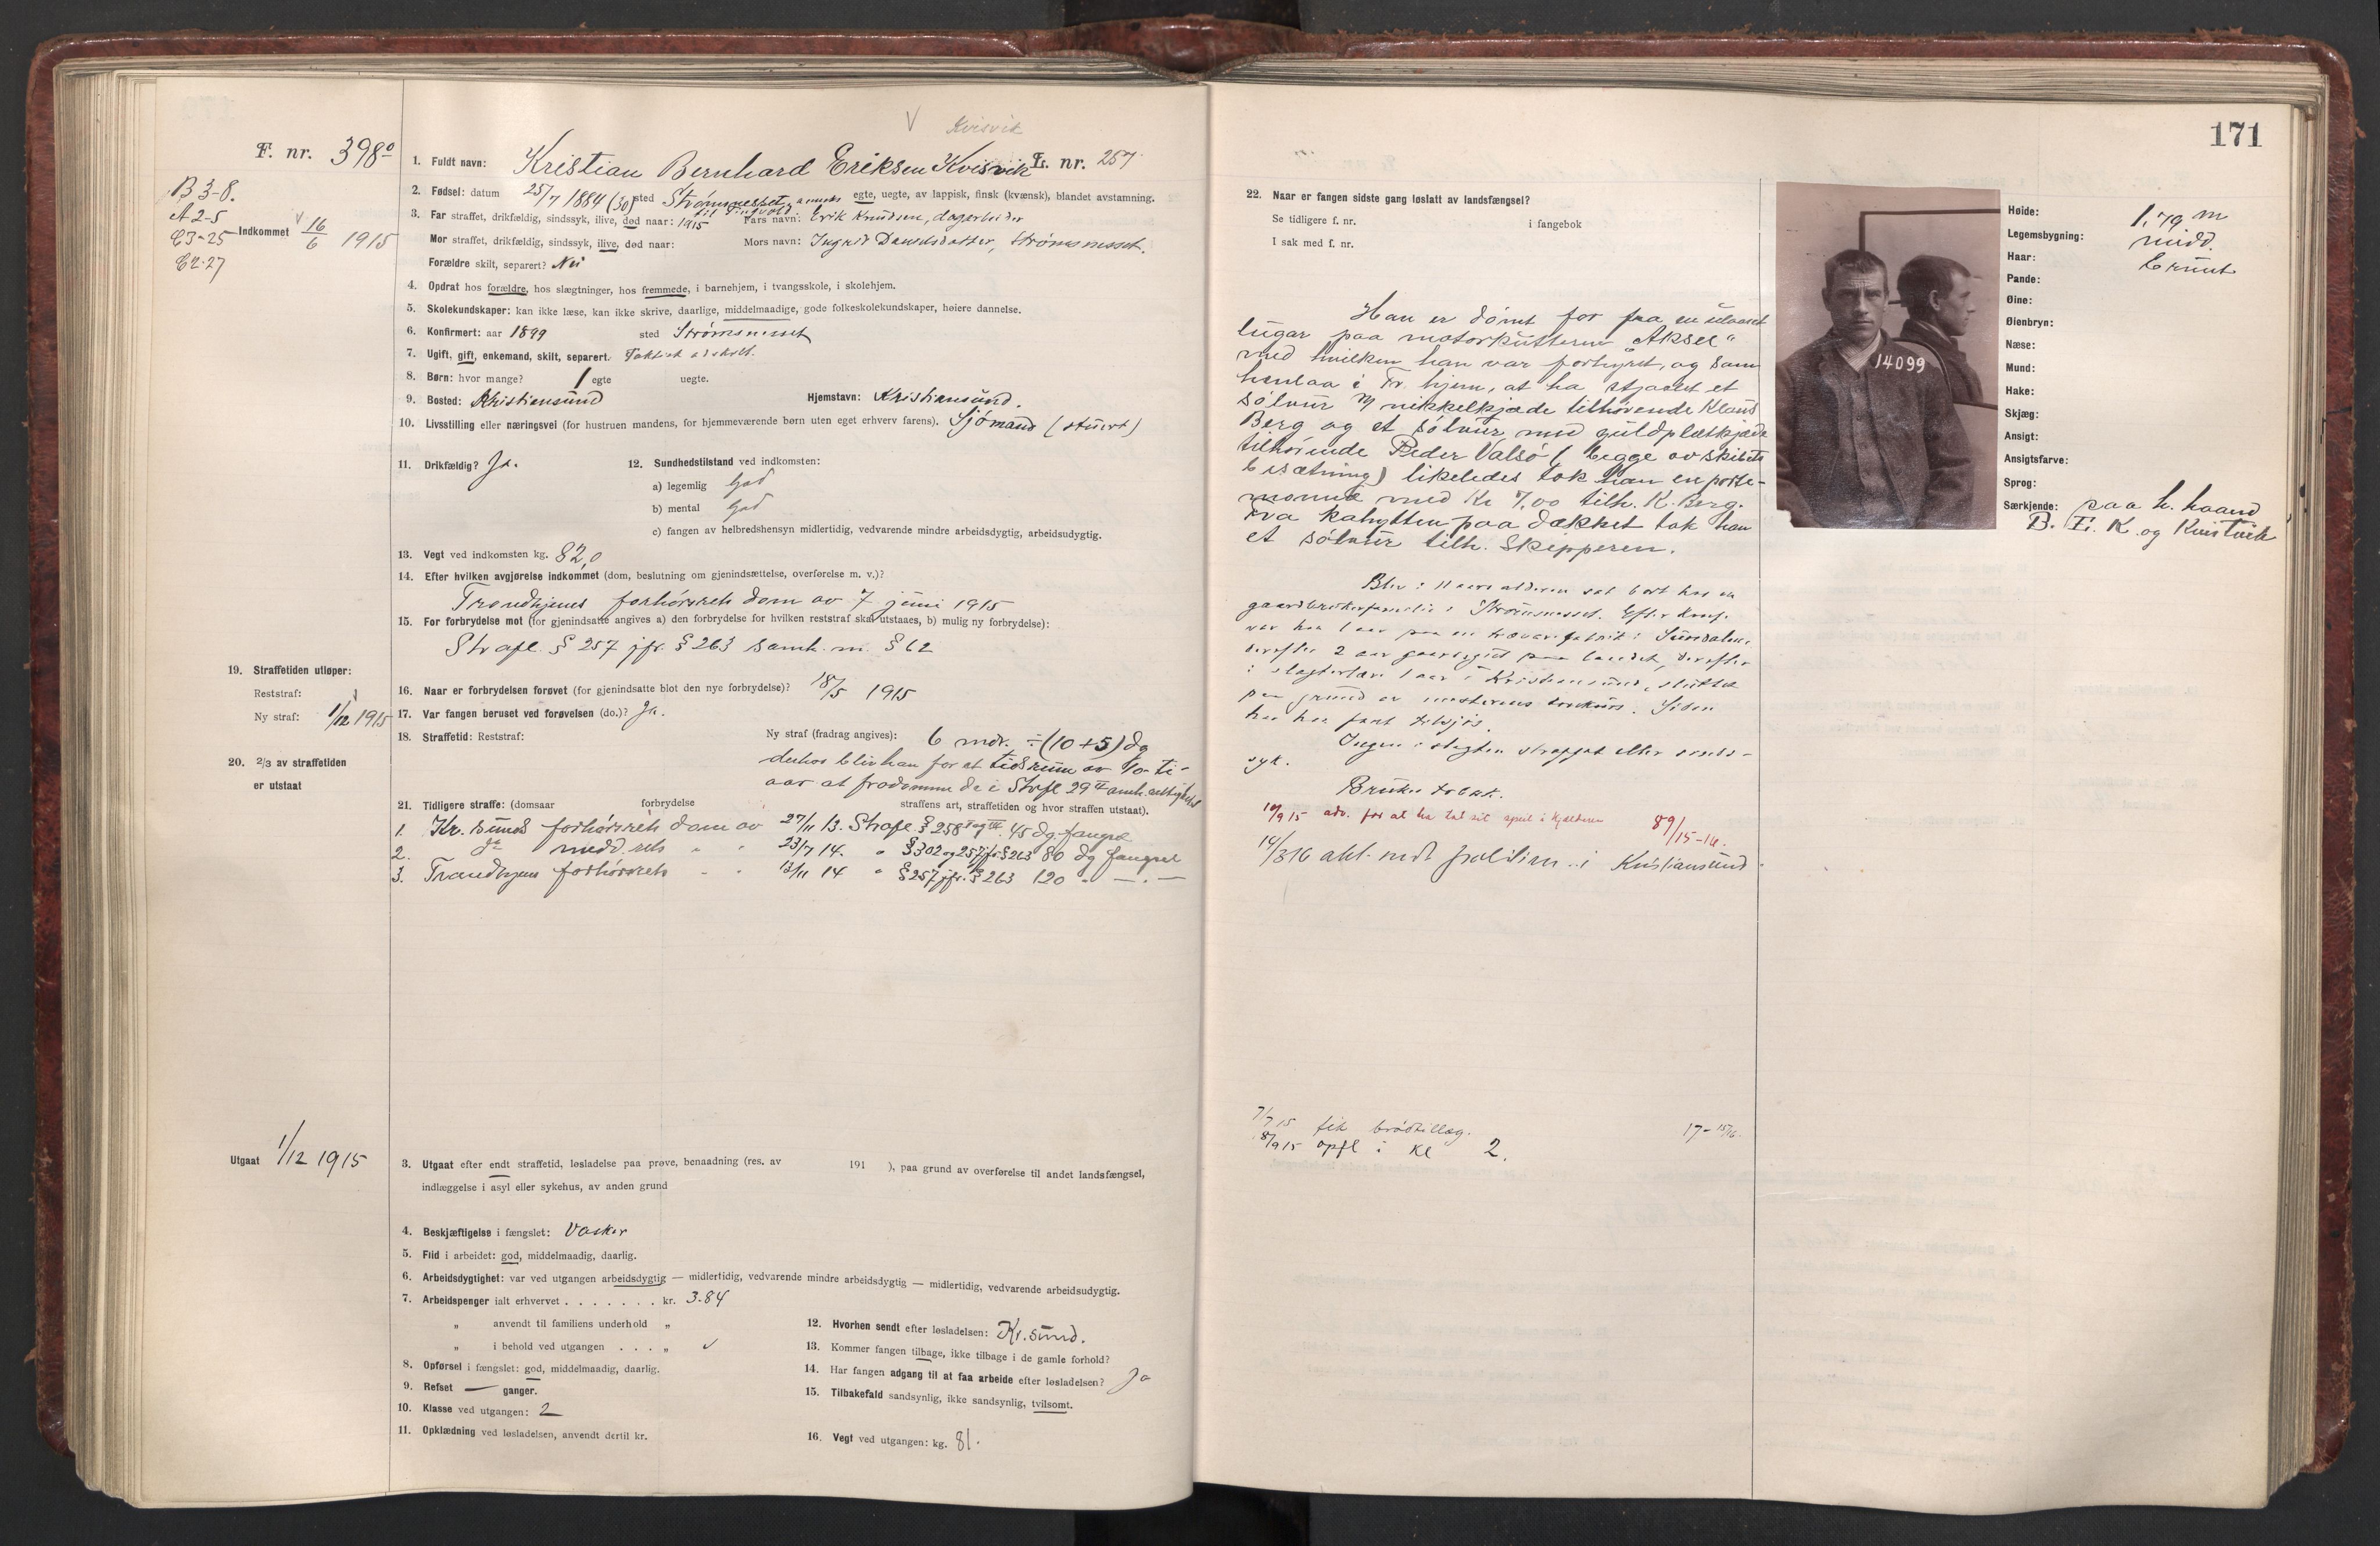 171
V Kvisvik
F. nr. 398º
1. Fuldt navn: Kristian Bernhard Eriksen Kvisvik L. nr. 257
B 3-8.
A 2-5
C 3-25
C 2.27
Indkommet 16/6 1915
2. Fødsel: datum 25/7 1884 (30) sted Strømsnesset, anneks til Tingvold. egte, uegte, av lappisk, finsk (kvænsk), blandet avstamning.
3. Far straffet, drikfældig, sindssyk, ilive, død naar: 1915 Fars navn: Erik Knudsen, dagarbeider
Mor straffet, drikfældig, sindssyk, ilive, død naar: Mors navn: Ingrid Davidsdatter, Strømsnesset.
Forældre skilt, separert? Nei
4. Opdrat hos forældre, hos slægtninger, hos fremmede, i barnehjem, i tvangsskole, i skolehjem.
5. Skolekundskaper: kan ikke læse, kan ikke skrive, daarlige, middelmaadige, gode folkeskolekundskaper, høiere dannelse.
6. Konfirmert: aar 1899 sted Strømsnesset
7. Ugift, gift, enkemand, skilt, separert. Faktisk adskilt.
8. Børn: hvor mange? 1 egte uegte.
9. Bosted: Kristiansund Hjemstavn: Kristiansund.
10. Livsstilling eller næringsvei (for hustruen mandens, for hjemmeværende børn uten eget erhverv farens). Sjømand (stuert)
11. Drikfældig? Ja. 12. Sundhedstilstand ved indkomsten:
a) legemlig God
b) mental God
c) fangen av helbredshensyn midlertidig, vedvarende mindre arbeidsdygtig, arbeidsudygtig.
13. Vegt ved indkomsten kg. 82,0
14. Efter hvilken avgjørelse indkommet (dom, beslutning om gjenindsættelse, overførelse m. v.)?
Trondhjems forhørsrets dom av 7 juni 1915
15. For forbrydelse mot (for gjenindsatte angives a) den forbrydelse for hvilken reststraf skal utstaaes, b) mulig ny forbrydelse):
Strafl. § 257 jfr. § 263 samh. m. § 62
19. Straffetiden utløper:
Reststraf:
Ny straf: 1/12 1915
16. Naar er forbrydelsen forøvet (for gjenindsatte blot den nye forbrydelse)? 18/5 1915
17. Var fangen beruset ved forøvelsen (do.)? Ja.
18. Straffetid: Reststraf: Ny straf (fradrag angives): 6 mdr. ÷ (10+5) dg
derhos blir han for et tidsrum av 10-ti-
aar at fradømme de i Strfl 29 II anh. rettigheter
20. 2/3 av straffetiden
er utstaat
21. Tidligere straffe: (domsaar forbrydelse straffens art, straffetiden og hvor straffen utstaat).
1. Kr. sunds forhørsrets dom av 27/11 13. Strafl. § 258 I og III. 45 dg. fængsel
2. do medd. rets " " 23/7 14. " § 302 og 257 jfr. § 263 80 dg fængsel
3. Trondhjems forhørsrets " " 13/11 14 " § 257 jfr. § 263 120 " —.—
Utgaat 1/12 1915
3. Utgaat efter endt straffetid, løsladelse paa prøve, benaadning (res. av 191 ), paa grund av overførelse til andet landsfængsel,
indlæggelse i asyl eller sykehus, av anden grund
4. Beskjæftigelse i fængslet: Vasker
5. Flid i arbeidet: god, middelmaadig, daarlig.
6. Arbeidsdygtighet: var ved utgangen arbeidsdygtig — midlertidig, vedvarende mindre arbeidsdygtig — midlertidig, vedvarende arbeidsudygtig.
7. Arbeidspenger ialt erhvervet . . . . . . . kr. 3.84
" anvendt til familiens underhold "
" i behold ved utgangen . . . "
8. Opførsel i fængslet: god, middelmaadig, daarlig.
9. Refset — ganger.
10. Klasse ved utgangen: 2
11. Opklædning ved løsladelsen, anvendt dertil kr.
12. Hvorhen sendt efter løsladelsen: Kr. sund.
13. Kommer fangen tilbage, ikke tilbage i de gamle forhold?
14. Har fangen adgang til at faa arbeide efter løsladelsen? Ja
15. Tilbakefald sandsynlig, ikke sandsynlig, tvilsomt.
16. Vegt ved utgangen: kg. 81.
22. Naar er fangen sidste gang løslatt av landsfængsel?
Se tidligere f. nr. i fangebok
I sak med f. nr.
Han er dømt for fra en ulaaset
lugar paa motorkutteren "Aksel"
med hvilken han var forhyret, og som
henlaa i Tr. hjem, at ha stjaalet et
sølvur m/ nikkelkjæde tilhørende Klaus
Berg og et sølvur med guldpletkjæde
tilhørende Peder Valsø (begge av skibets
besætning) likeledes tok han en porte-
monnæ med Kr 7,00 tilh. K. Berg.
Fra kahytten paa dækket tok han
et sølvur tilh. Skipperen.
Blev i 11 aars alderen sat bort hos en
gaardbrukerfamilie i Strømsnesset. Efter konf.
var han 1 aar paa en trævarefabrik i Sundalen,
derefter 2 aar gaardsgut paa landet, derefter
i slagterlære 1 aar i Kristiansund, sluttet
paa grund av mesterens konkurs. Siden
har han faret tilsjøs.
Ingen i slegten straffet eller sinds-
syk.
Bruker tobak.
10/9 15 adv. for at ha tat sit speil i kjælderen 89/15-16.
14/3 16 akt. med politim. i Kristiansund
7/7 15 fik brødtillæg. 17-15/16.
8/9 15 opfl i Kl 2.
14099
Høide: 1,79 m
Legemsbygning: midd.
Haar: brunt
Pande:
Øine:
Øienbryn:
Næse:
Mund:
Hake:
Skjæg:
Ansigt:
Ansigtsfarve:
Sprog:
Særkjende: paa h. haand
B. E. K. og Kvistvik